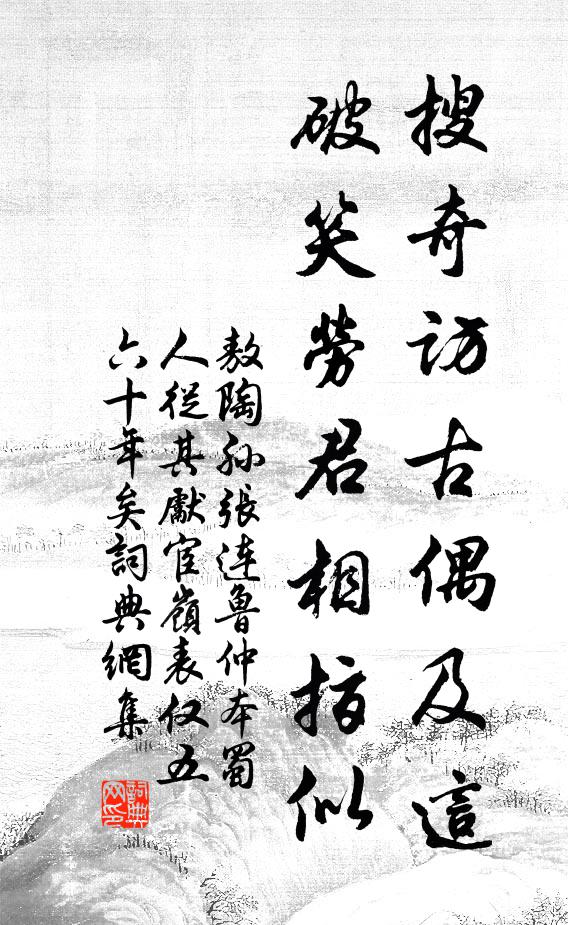 搜奇訪古偶及這
破笑勞君相指似
敖陶孙張連魯仲本蜀
人從其獻宦嶺表仅五
六十年矣詞典網集
詞典网印